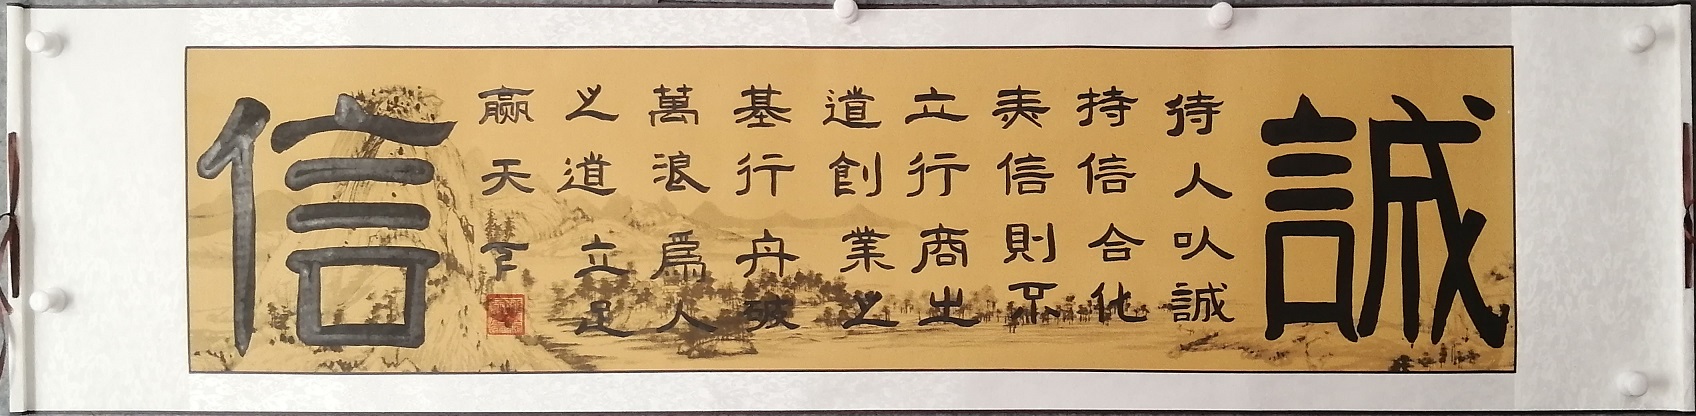 誠
待人以誠
持信合化
失信則不
立行商之
道創業之
基行舟破
萬浪爲人
之道立足
贏天下
信